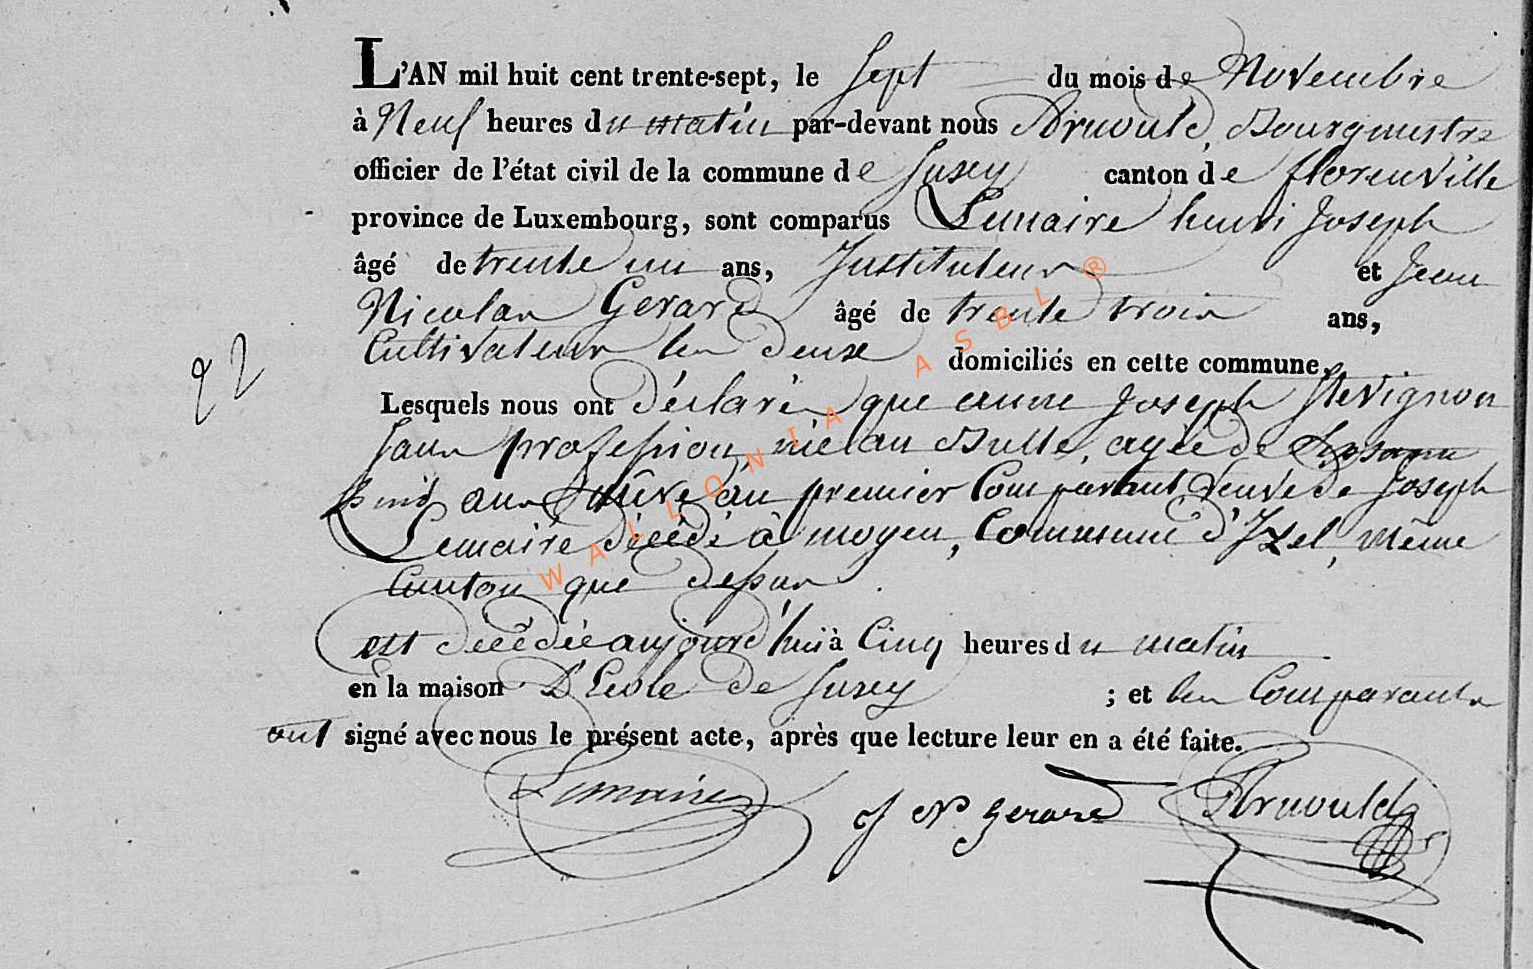 L'AN mil huit cent trente-sept, le Sept du mois de Novembre
à Neuf heures du matin par-devant nous Arnould, Bourgmestre
officier de l'état civil de la commune de Suxy canton de florenville
province de Luxembourg, sont comparus Lemaire henri Joseph
âgé de trente un ans, Instituteur et Jean
Nicolas Gerard âgé de trente trois ans,
Cultivateur les deux domiciliés en cette commune.
22
Lesquels nous ont déclarés que anne Joseph Stevignon
sans profession, née au Bulle, agée de Soixante
huit ans Mère au premier Comparant Veuve de Joseph
Lemaire décédé à moyen, Commune d'Izel, même
Canton que dessus.
est décédée aujourd'hui à Cinq heures du matin
en la maison D'Ecole de Suxy ; et les Comparants
ont signé avec nous le présent acte, après que lecture leur en a été faite.
Lemaire J N Gerard Arnould
WALLONIA ASBL ®